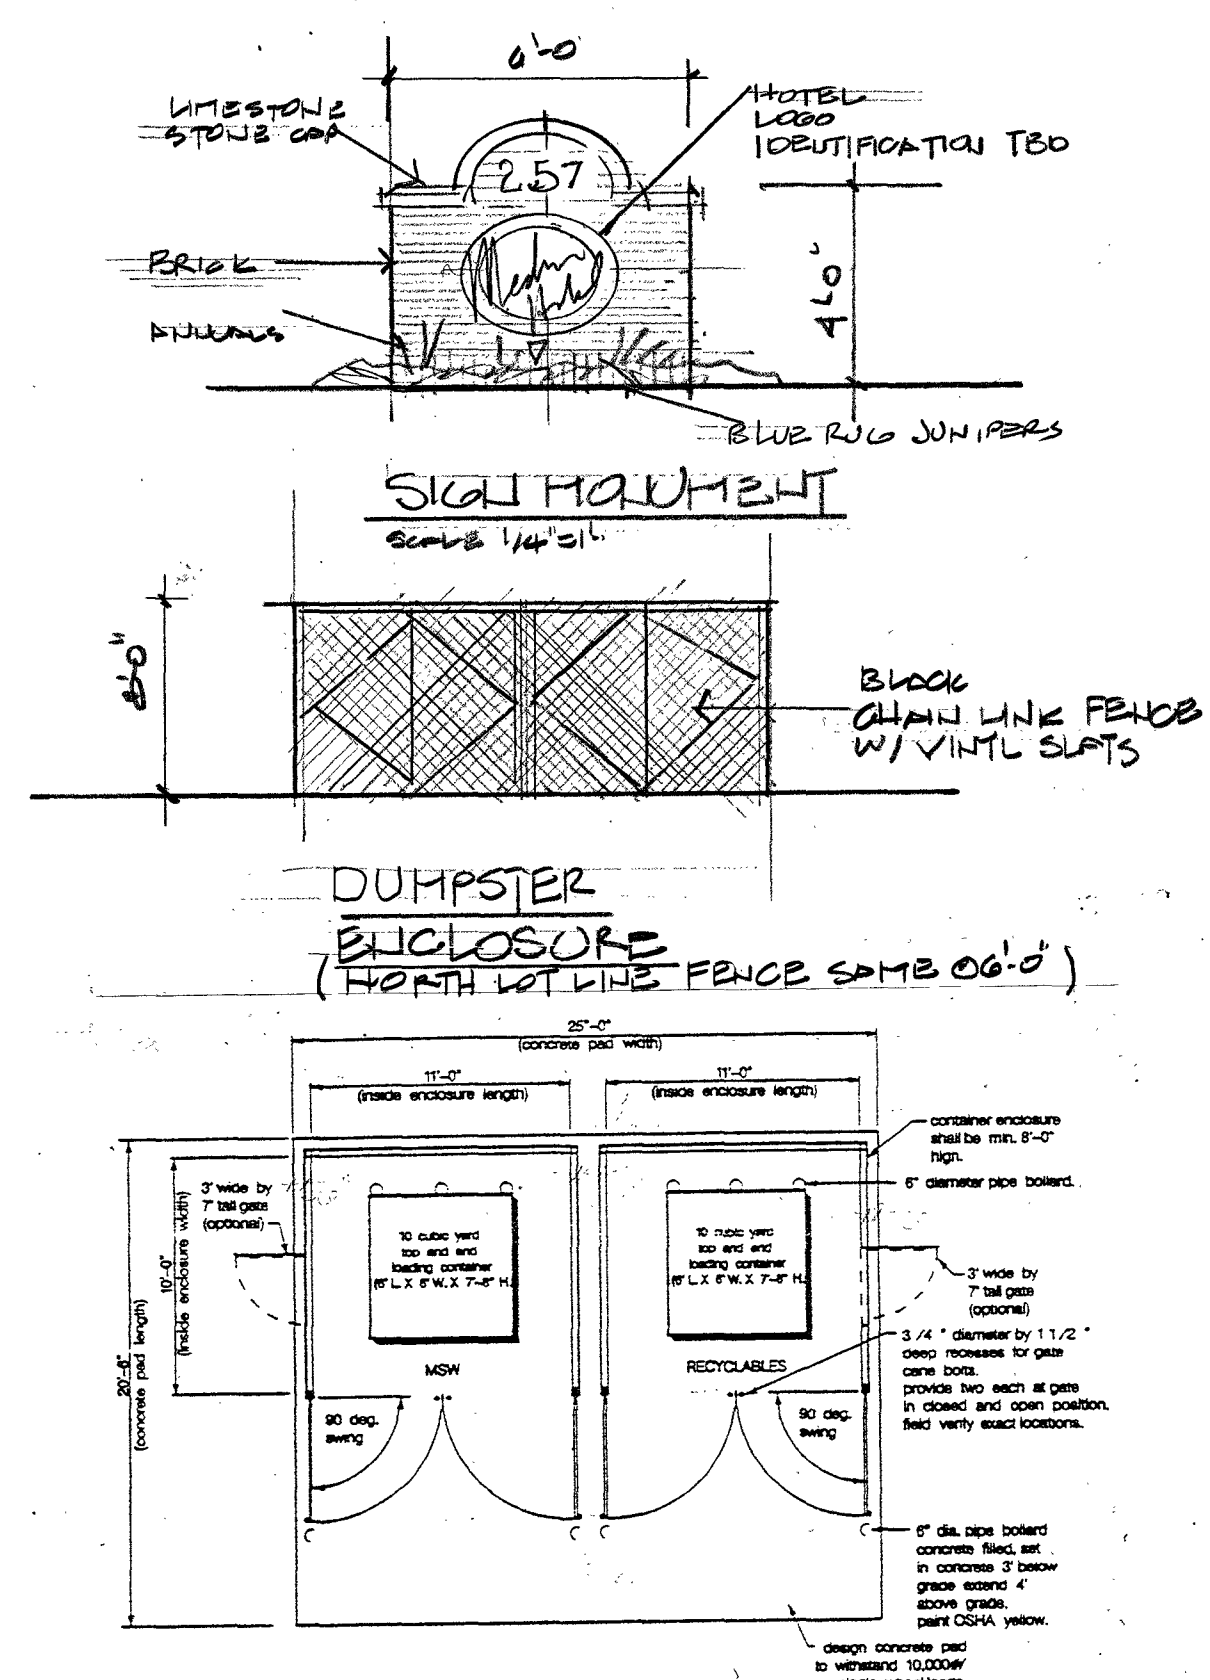 6'-0"
LIMESTONE
STONE CAP
HOTEL
LOGO
IDENTIFICATION TBD
257
BRICK
4'-0"
ANNUALS
BLUE RUG JUNIPERS
SIGN MONUMENT
SCALE 1/4"=1'
8'-0"
BLACK
CHAIN LINK FENCE
W/ VINYL SLATS
DUMPSTER
ENCLOSURE
(NORTH LOT LINE FENCE SAME @ 6'-0")
25'-0"
(concrete pad width)
11'-0"
(inside enclosure length)
11'-0"
(inside enclosure length)
container enclosure
shall be min. 8'-0"
high.
6" diameter pipe bollard.
3' wide by
7' tall gate
(optional)
10'-0"
(inside enclosure width)
20'-6"
(concrete pad length)
10 cubic yard
top and end
loading container
(6' L X 6' W. X 7'-8" H.)
10 cubic yard
top and end
loading container
(6' L X 6' W. X 7'-8" H.)
3' wide by
7' tall gate
(optional)
MSW
RECYCLABLES
3/4 " diameter by 1 1/2 "
deep recesses for gate
cane bolts.
provide two each at gate
in closed and open position.
field verify exact locations.
90 deg.
swing
90 deg.
swing
6" dia. pipe bollard
concrete filled, set
in concrete 3' below
grade extend 4'
above grade.
paint OSHA yellow.
design concrete pad
to withstand 10,000#